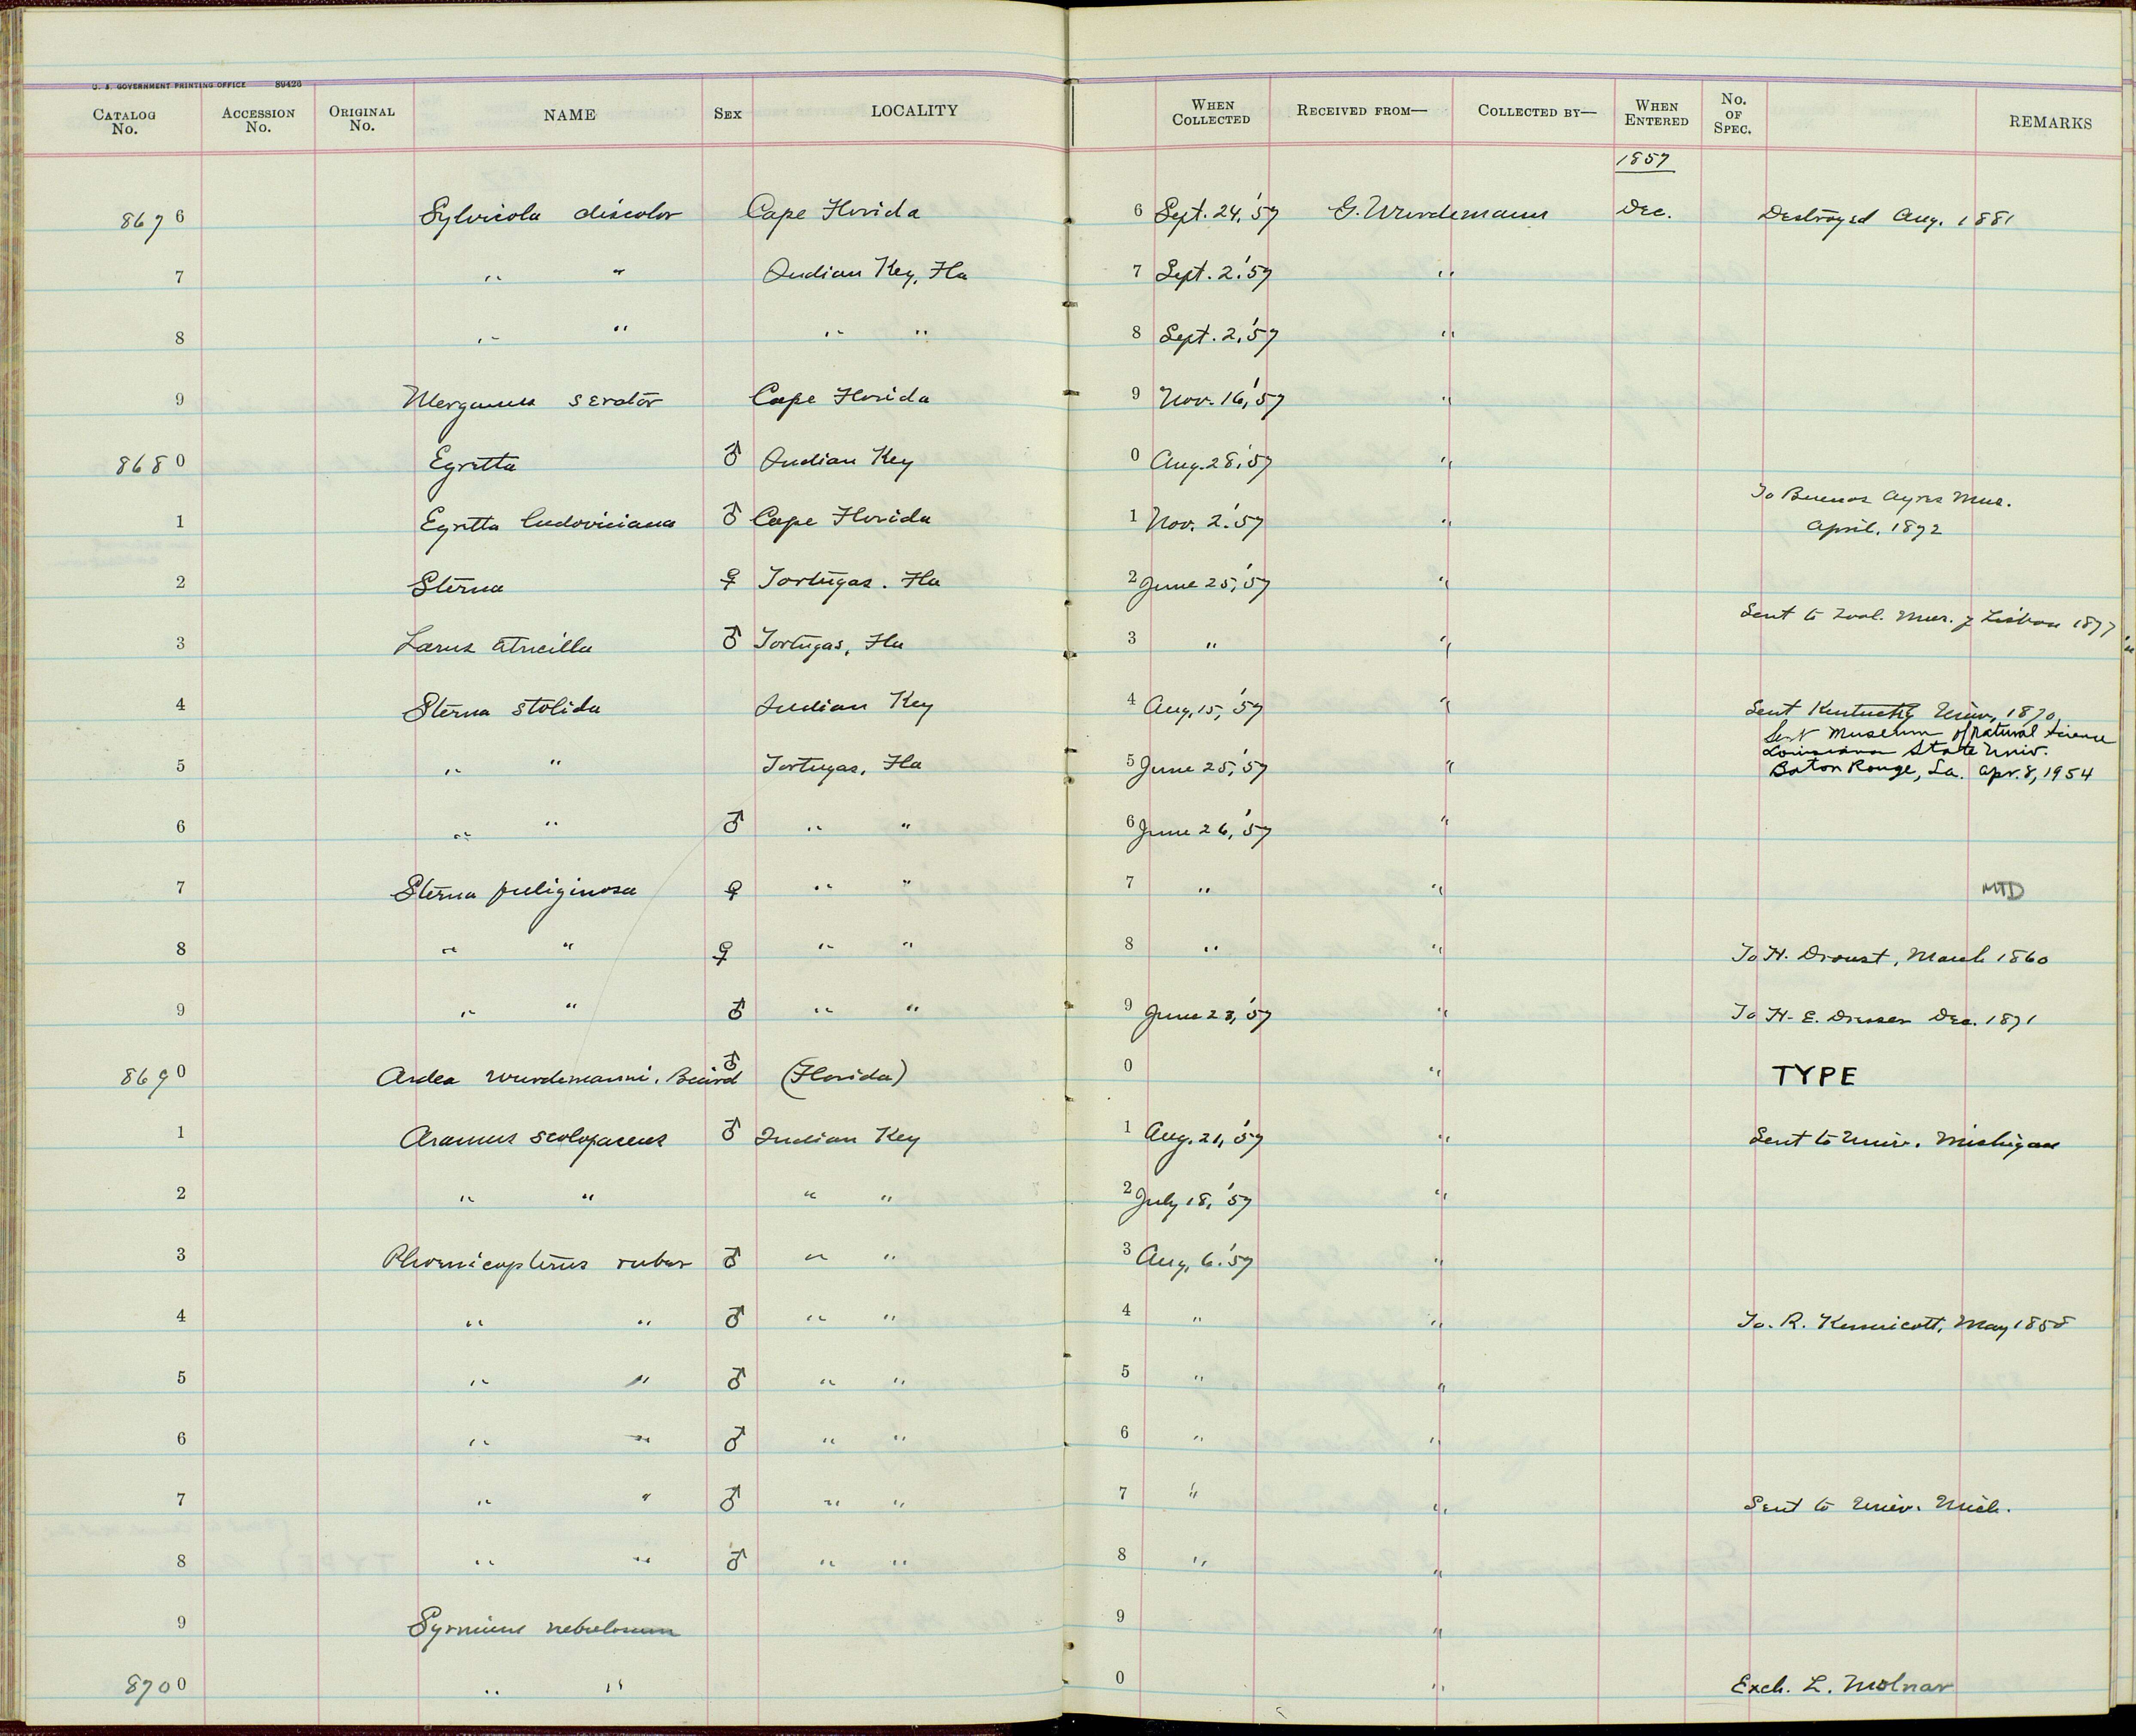 U. S. GOVERNMENT PRINTING OFFICE 89426
CATALOG No. ACCESSION No. ORIGINAL No. NAME SEX LOCALITY WHEN COLLECTED RECEIVED FROM— COLLECTED BY— WHEN ENTERED No. OF SPEC. REMARKS
1857
8676 Sylvicola discolor Cape Florida 6 Sept. 24, '57 G. Wurdemann Dec. Destroyed Aug. 1881
7 " " Indian Key, Fla 7 Sept. 2, '57 "
8 " " " " 8 Sept. 2, '57 "
9 Mergus serrator Cape Florida 9 Nov. 16, '57 "
8680 Egretta ♂ Indian Key 0 Aug. 28, '57 "
To Buenos Ayres Mus.
1 Egretta ludoviciana ♂ Cape Florida 1 Nov. 2, '57 " April, 1872
2 Sterna ♀ Tortugas. Fla 2 June 25, '57 "
Sent to Zool. Mus. of Lisbon 1877
3 Larus atricilla ♂ Tortugas, Fla 3 " "
4 Sterna stolida Indian Key 4 Aug. 15, '57 " Sent Kentucky Univ, 1870
Sent Museum of Natural Science
Louisiana State Univ.
5 " " Tortugas, Fla 5 June 25, '57 " Baton Rouge, La. Apr. 8, 1954
6 " " ♂ " " 6 June 26, '57 "
7 Sterna fuliginosa ♀ " " 7 " " MTD
8 " " ♀ " " 8 " " To H. Drouet, March 1860
9 " " ♂ " " 9 June 23, '57 " To H. E. Dresser Dec. 1871
8690 Ardea wurdemanni, Baird ♂ (Florida) 0 " TYPE
1 Aramus scolopaceus ♂ Indian Key 1 Aug. 21, '57 " Sent to Univ. Michigan
2 " " " " 2 July 18, '57 "
3 Phoenicopterus ruber ♂ " " 3 Aug. 6. '57 "
4 " " ♂ " " 4 " " To. R. Kennicott, May 1858
5 " " ♂ " " 5 " "
6 " " ♂ " " 6 " "
7 " " ♂ " " 7 " " Sent to Univ. Mich.
8 " " ♂ " " 8 " "
9 Syrnium nebulosum 9 "
8700 " " 0 " Exch. L. Molnar